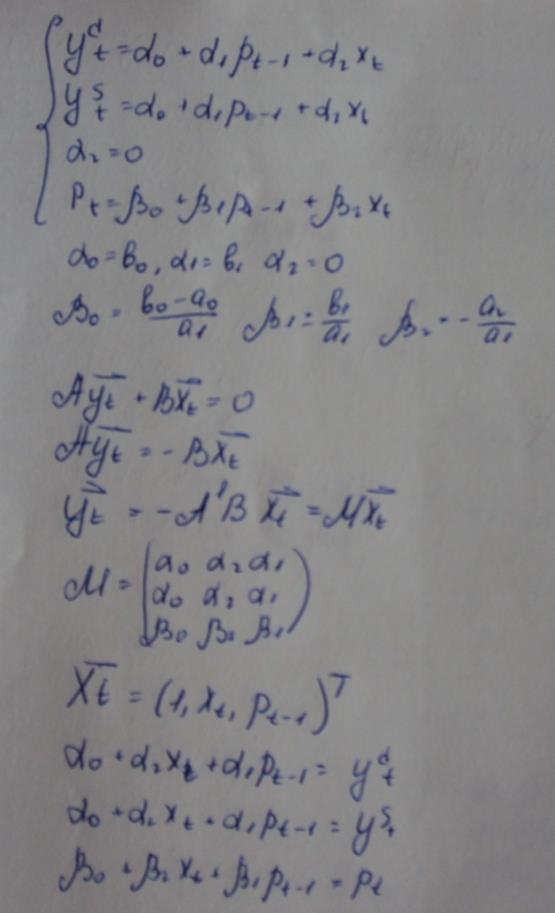 y_t^d = α_0 + α_1 p_{t-1} + α_2 x_t
y_t^s = α_0 + α_1 p_{t-1} + α_2 x_t
α_2 = 0
P_t = β_0 + β_1 p_{t-1} + β_2 x_t
α_0 = b_0, α_1 = b_1 α_2 = 0
β_0 = (b_0 - a_0)/a_1 β_1 = b_1/a_1 β_2 = - a_2/a_1
A y_t + B x_t = 0
A y_t = - B x_t
y_t = - A^{-1} B x_t = M x_t
M = ( α_0 α_2 α_1
α_0 α_2 α_1
β_0 β_2 β_1 )
X_t = (1, x_t, p_{t-1})^T
α_0 + α_2 x_t + α_1 p_{t-1} = y_t^d
α_0 + α_2 x_t + α_1 p_{t-1} = y_t^s
β_0 + β_2 x_t + β_1 p_{t-1} = p_t